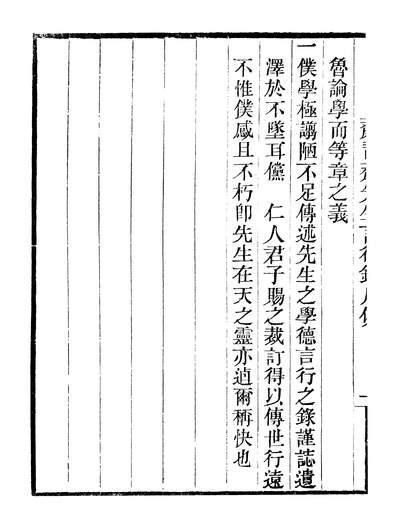 魯論學而等章之義
一僕學極譾陋不足傳述先生之學德言行之錄謹誌遺
澤於不墜耳儻　仁人君子賜之裁訂得以傳世行遠
不惟僕感且不朽卽先生在天之靈亦逌爾稱快也